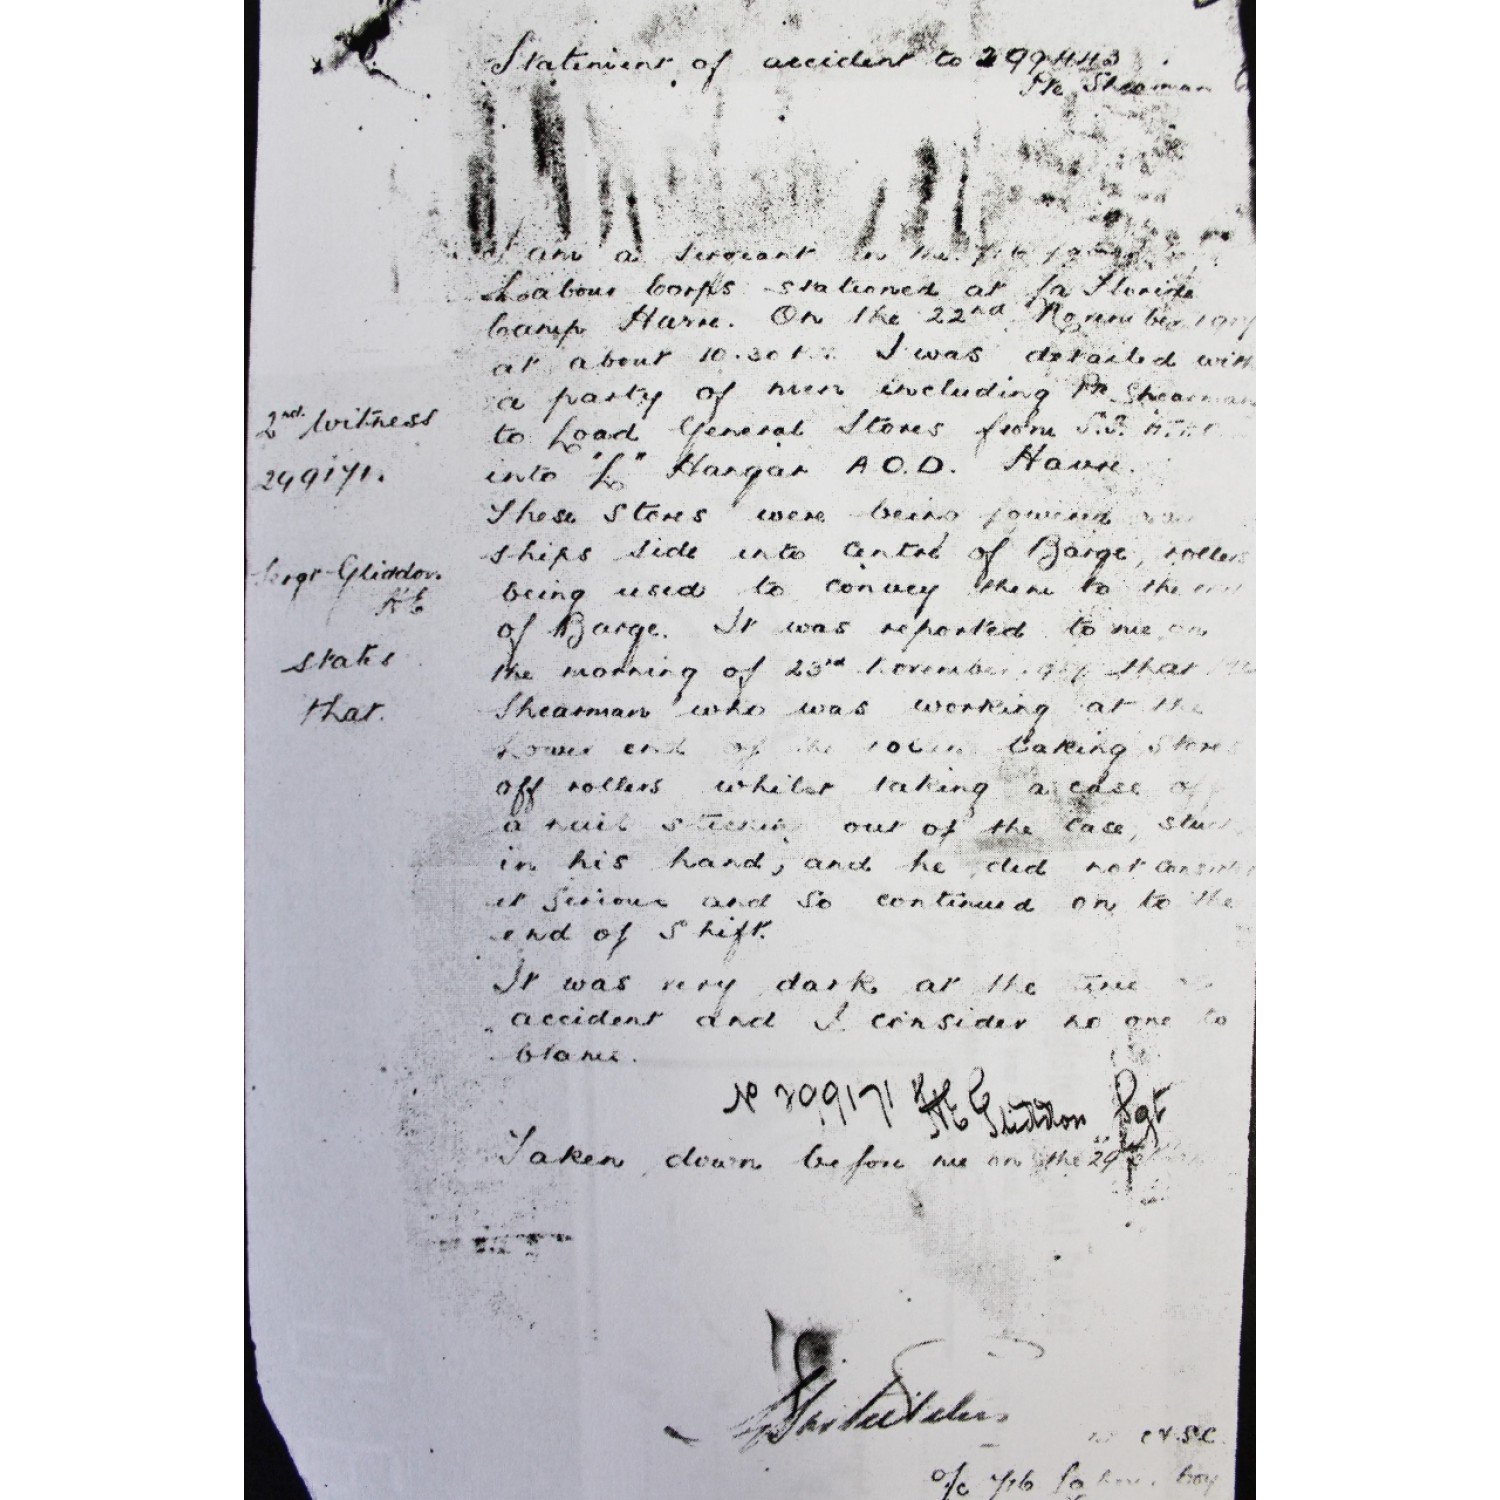 Statement of accident to 299443
Pte Shearman
I am a Sergeant in the 716
Labour Corps stationed at La Floride
Camp Havre. On the 22nd November 1917
at about 10.30 P.M. I was detailed with
a party of men including Pte Shearman
2nd Witness
to Load General Stores from S.S.
299171.
into "L" Hangar A.O.D. Havre.
These Stores were being lowered
ships side into Centre of Barge, rollers
Sergt Gliddon
H E
being used to convey them to the end
of Barge. It was reported to me on
states
the morning of 23rd November 1917 that Pte
that.
Shearman who was working at the
Lower end of the taking Stores
off rollers whilst taking a case off
a nail sticking out of the case, stuck
in his hand, and he did not consider
it serious and so continued on to the
end of Shift.
It was very dark at the time
accident and I consider no one to
blame.
No 299171 H E Gliddon Sgt
Taken down before me on the 29th
O/C 716 Labour Coy